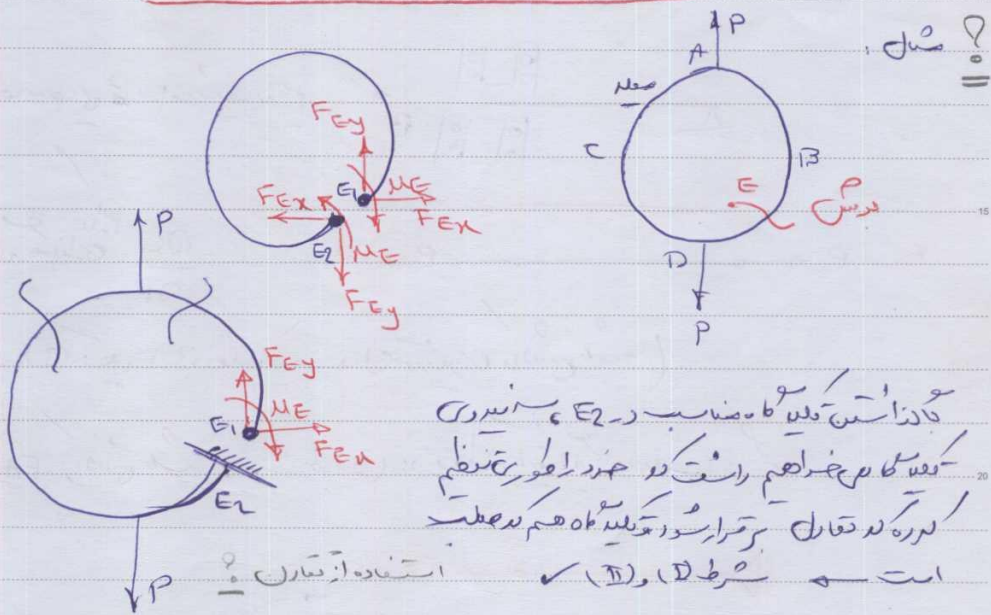 مثال :
؟
P
A
صلب
C
B
E
برش
D
P
F Ey
E1
ME
F Ex
F Ex
E2
ME
F Ey
P
F Ey
ME
E1
F Ex
E2
P
با گذاشتن تکیه گاه مناسب در E2 ، سه نیروی
تکیه گاهی خواهیم داشت که خود را طوری تنظیم
کرده که تعادل برقرار شود و تکیه گاه هم که صلب
است شرط (I) و (II) ✓
استفاده از تقارن ؟
15
20